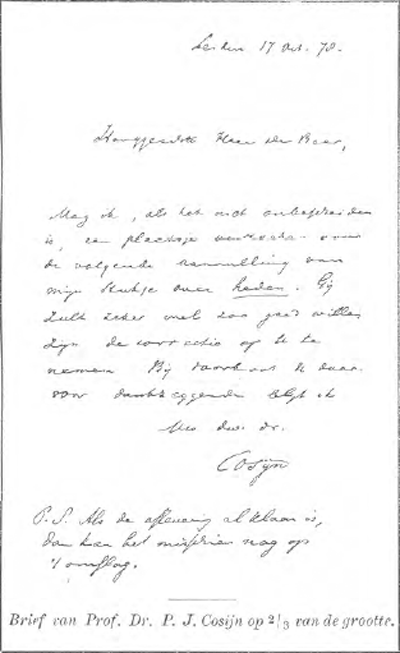 Leiden 17 Oct. 78.
Hooggeachte Heer de Beer,
Mag ik, als het niet onbescheiden
is, een plaatsje verzoeken voor
de volgende aanvulling van
mijn stukje over heden. Gij
zult zeker wel zoo goed willen
zijn de correctie op U te
nemen. Bij voorbaat U daar-
voor dankzeggende blijf ik
Uw dw. dr.
Cosijn
P. S. Als de aflevering al klaar is,
dan kan het misschien nog op
't omslag.
Brief van Prof. Dr. P. J. Cosijn op 2/3 van de grootte.